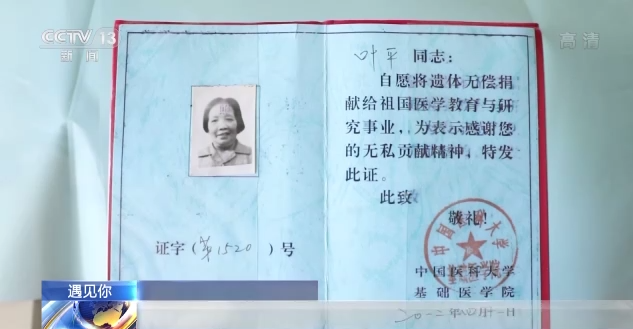 CCTV 13
新闻
高清
叶平同志：
自愿将遗体无偿捐
献给祖国医学教育与研
究事业，为表示感谢您
的无私贡献精神，特发
此证。
此致
敬礼！
证字（第1520）号
中国医科大学
基础医学院
二〇一二年四月十一日
遇见你